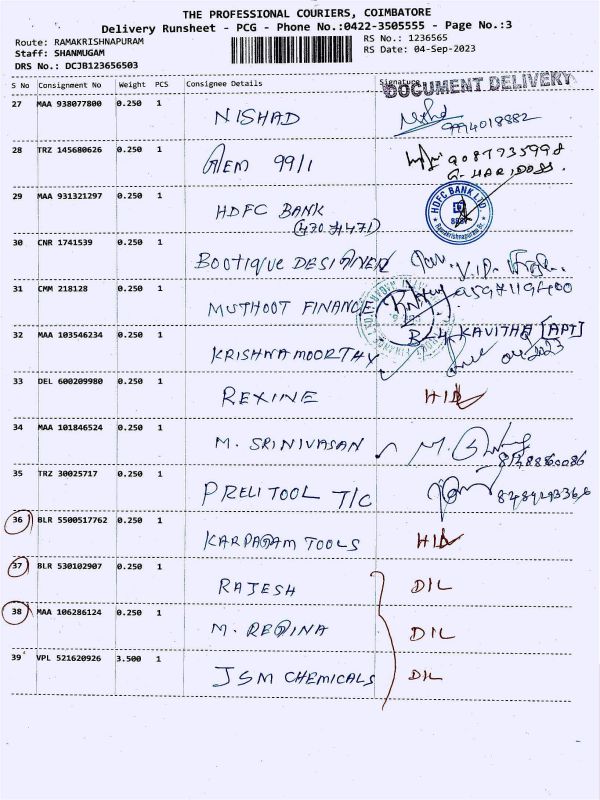 THE PROFESSIONAL COURIERS, COIMBATORE
Delivery Runsheet - PCG - Phone No.:0422-3505555 - Page No.:3
Route: RAMAKRISHNAPURAM RS No.: 1236565
Staff: SHANMUGAM RS Date: 04-Sep-2023
DRS No.: DCJB123656503
S No Consignment No Weight PCS Consignee Details Signature
DOCUMENT DELIVERY
27 MAA 938077800 0.250 1 NISHAD
9994018882
28 TRZ 145680626 0.250 1 GEM 99/1 9087735998
G. HARIDOSS.
29 MAA 931321297 0.250 1 HDFC BANK HDFC BANK LTD
(470 471) Ramakrishnapuram Br.
30 CNR 1741539 0.250 1 BOOTIQUE DESIGNER
31 CMM 218128 0.250 1 MUTHOOT FINANCE
32 MAA 103546234 0.250 1 KRISHNAMOORTHY KAVITHA
33 DEL 600209980 0.250 1 REXINE HIL
34 MAA 101846524 0.250 1 M. SRINIVASAN
35 TRZ 30025717 0.250 1 PRELITOOL T/C
36 BLR 5500517762 0.250 1 KARPAGAM TOOLS HIL
37 BLR 530102907 0.250 1 RAJESH DIL
38 MAA 106286124 0.250 1 M. REGINA DIL
39 VPL 521620926 3.500 1 JSM CHEMICALS DIL